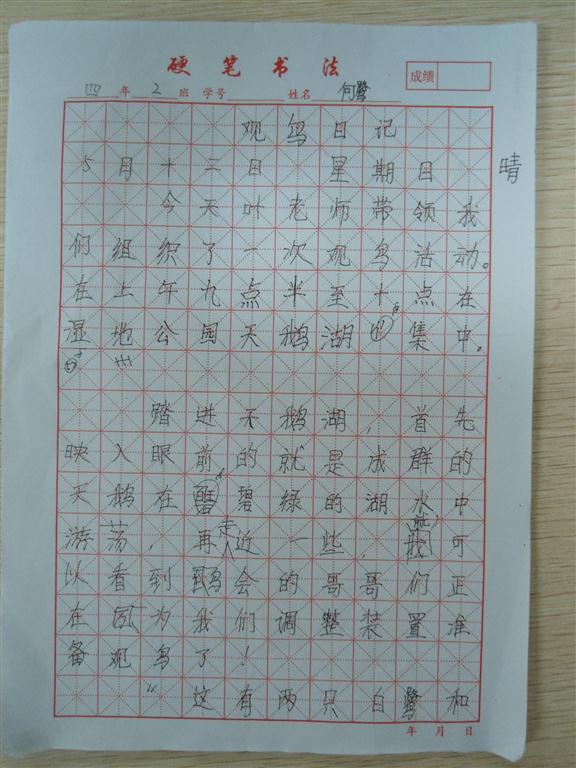 硬笔书法
成绩
四年2班 学号 姓名 何鹭
观鸟日记
5月十三日 星期日 晴
今天叶老师带领我
们组织了一次观鸟活动。
在上午九点半至十点在
湿地公园天鹅湖中集中。
踏进天鹅湖,首先
映入眼前的就是成群的
天鹅在碧绿的湖水中
游荡,再走近一些,就可
以看到鸟会的哥哥们正
在为我们调整装置准
备观鸟了!
“这有两只白鹭和
年 月 日